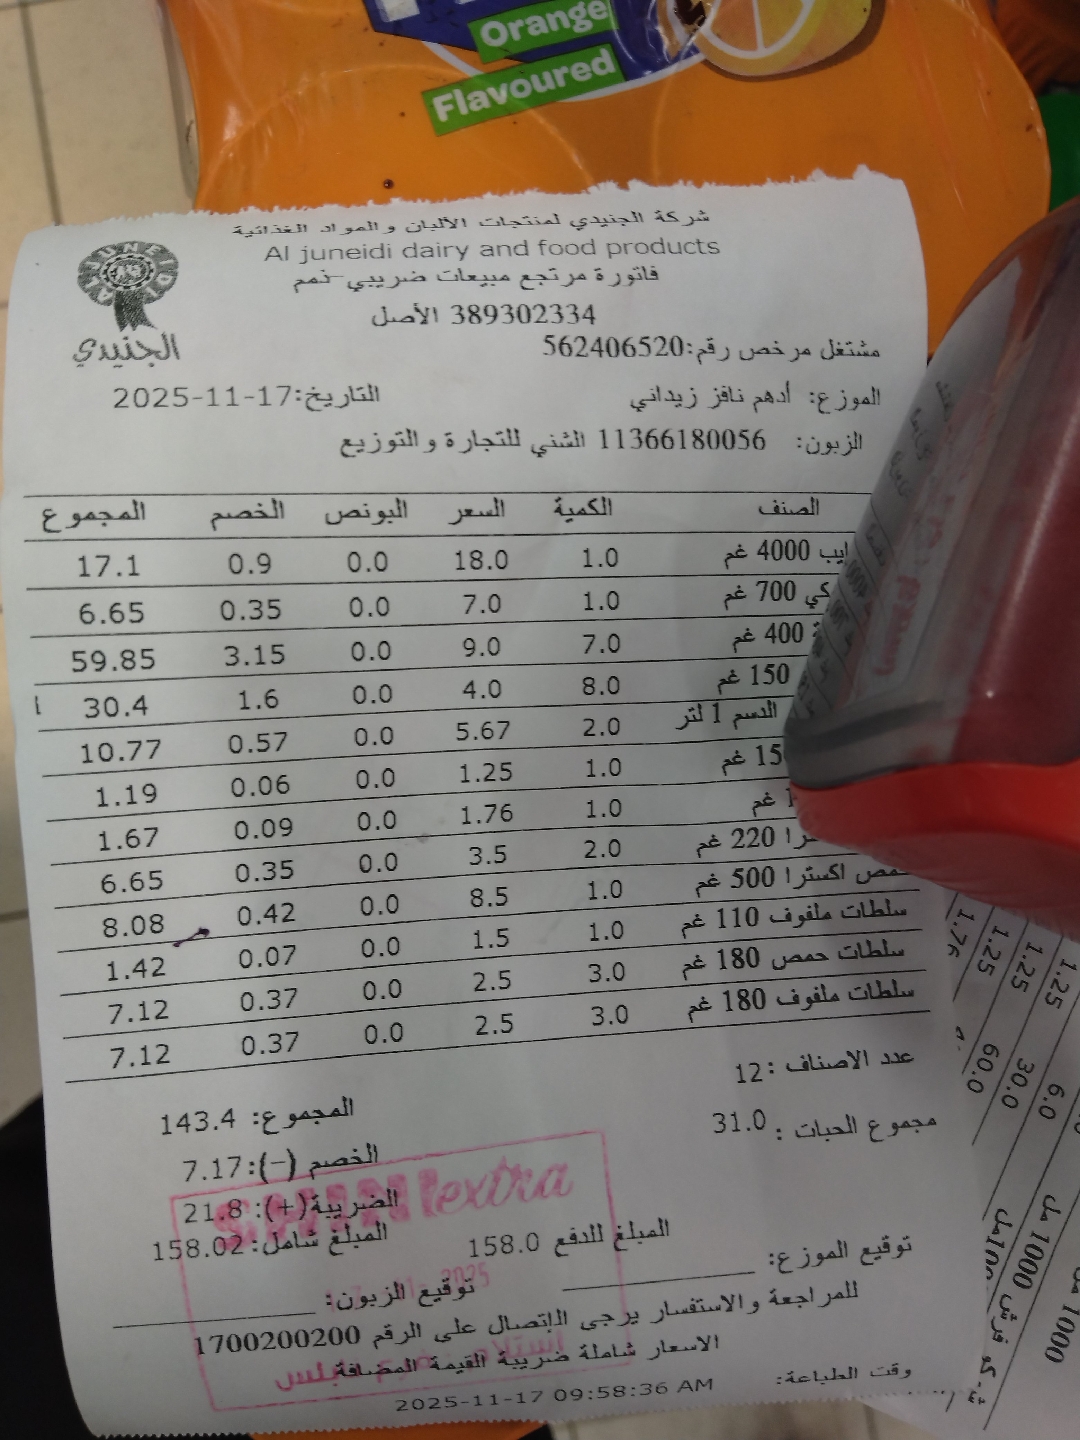 Orange
Flavoured
شركة الجنيدي لمنتجات الألبان والمواد الغذائية
Al juneidi dairy and food products
فاتورة مرتجع مبيعات ضريبي-ذمم
389302334 الأصل
AL JUNEIDI
الجنيدي
مشتغل مرخص رقم:562406520
الموزع: أدهم نافز زيداني التاريخ:2025-11-17
الزبون: 11366180056 الشني للتجارة والتوزيع
الصنف الكمية السعر البونص الخصم المجموع
4000 غم 1.0 18.0 0.0 0.9 17.1
700 غم 1.0 7.0 0.0 0.35 6.65
400 غم 7.0 9.0 0.0 3.15 59.85
150 غم 8.0 4.0 0.0 1.6 30.4
الدسم 1 لتر 2.0 5.67 0.0 0.57 10.77
غم 1.0 1.25 0.0 0.06 1.19
غم 1.0 1.76 0.0 0.09 1.67
220 غم 2.0 3.5 0.0 0.35 6.65
حمص اكسترا 500 غم 1.0 8.5 0.0 0.42 8.08
سلطات ملفوف 110 غم 1.0 1.5 0.0 0.07 1.42
سلطات حمص 180 غم 3.0 2.5 0.0 0.37 7.12
سلطات ملفوف 180 غم 3.0 2.5 0.0 0.37 7.12
عدد الاصناف :12
المجموع: 143.4
مجموع الحبات : 31.0
الخصم (-):7.17
الضريبة(+): 21.8
المبلغ شامل: 158.02
المبلغ للدفع 158.0
SHINI extra
توقيع الموزع:
توقيع الزبون:
2025
للمراجعة والاستفسار يرجى الإتصال على الرقم 1700200200
الاسعار شاملة ضريبة القيمة المضافة
وقت الطباعة: 2025-11-17 09:58:36 AM
1.76
1.25
1.25
1.25
60.0
30.0
6.0
1000 مل
1000